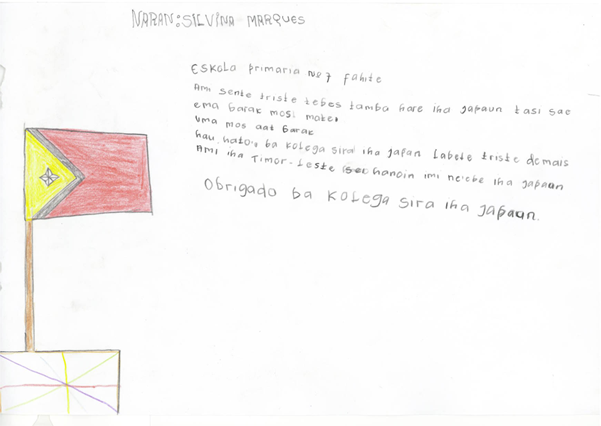 NARAN: SILVINA MARQUES
ESKOLA primaria No 7 Fahite
Ami sente triste tebes tamba hare iha japaun tasi sae
ema barak mos: mate:
uma mos aat barak
hau hato'o ba kolega sira iha japan Labele triste demais
Ami iha Timor-Leste hanoin imi ne'ebe iha japaun
Obrigado ba kolega sira iha japaun.